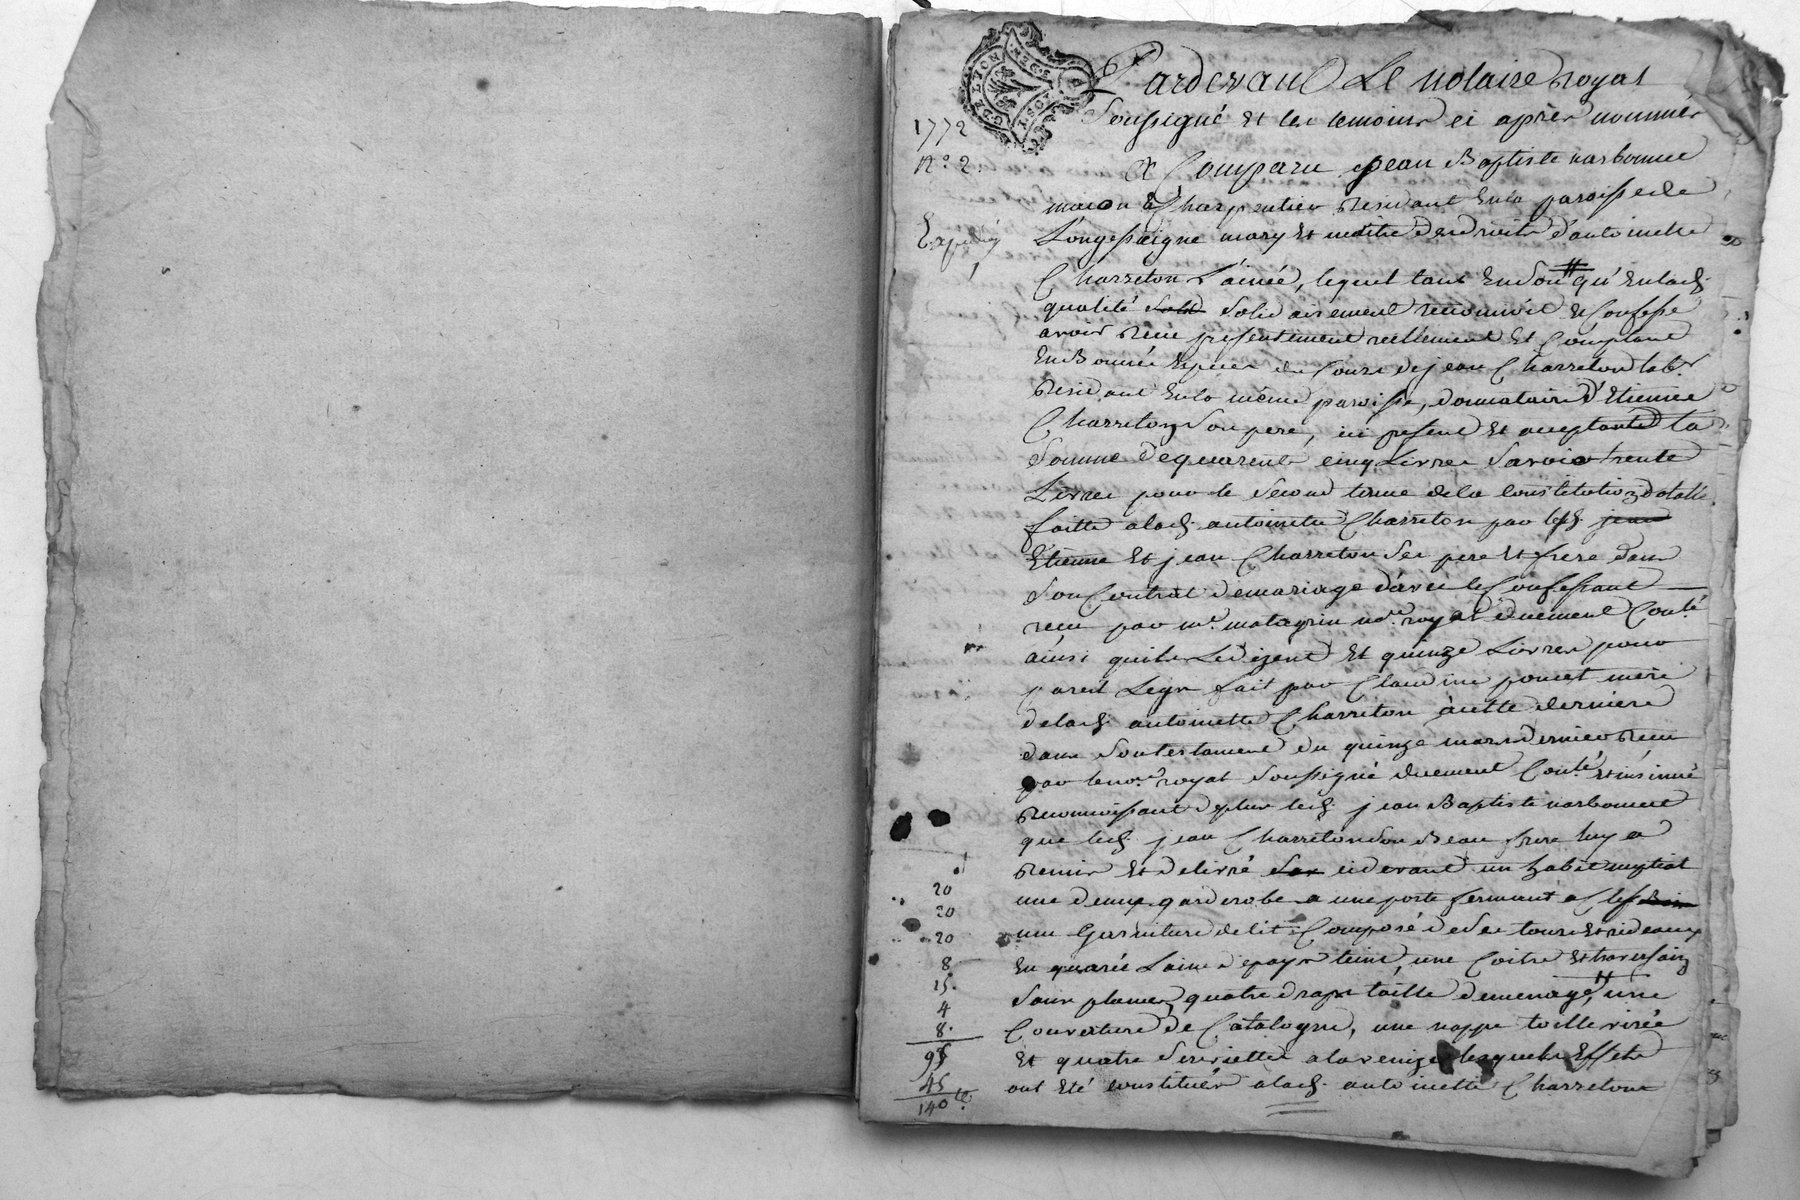 GEN. LYON
1772
N.° 2.
Expedié
Pardevant Le notaire royal
Soussigné et les temoins ci après nommés
A Comparu jean Baptiste narbonne
maçon & Charpentier Residant en la paroisse de
Longessaigne mary et maitre des droits d'antoinette
Charreton L'ainée, lequel tant en son # qu'en lad.
qualité solid solidairement reconnoit et Confesse
avoir Reçu presentement reellement et Comptant
en Bonnes Especes du Cours de jean Charreton lab.r
Residant en la même paroisse, donnataire d'Etienne
Charreton son pere, ici present et acceptant la
somme de quarente cinq Livres savoir trente
Livres pour le second terme de la constitution dotalle
faitte a lad. antoinette Charreton par lesd. jean
Etienne et jean Charreton ses pere et frere dans
son Contrat de mariage d'avec le Confessant
reçu par m.e matagrin no.re royal duement Conlé
ainsi qu'ils Le dizent et quinze Livres pour
pareil Legs fait par Claudine poncet mere
de lad. antoinette Charreton à cette derniere
dans son testament du quinze mars dernier Reçu
par le no.re royal soussigné duement Conlé et insinué
Reconnoissant de plus led. jean Baptiste narbonne
que led. jean Charreton son Beau frere luy a
Remis et delivré cidevant un habit nuptial
une demy garderobe a une porte fermant a Clef
une Garniture de lit Composé de ses tours et rideaux
en Laine de pays teint, une Coitre et traversain
sans plumes, quatre draps toille de menage, # une
Couverture de Catalogne, une nappe toille
et quatre serviettes a la venize lesquels Effets
ont Eté constitués a lad. antoinette Charreton
20
20
20
8
15.
4
8.
95
45
140 ₶.